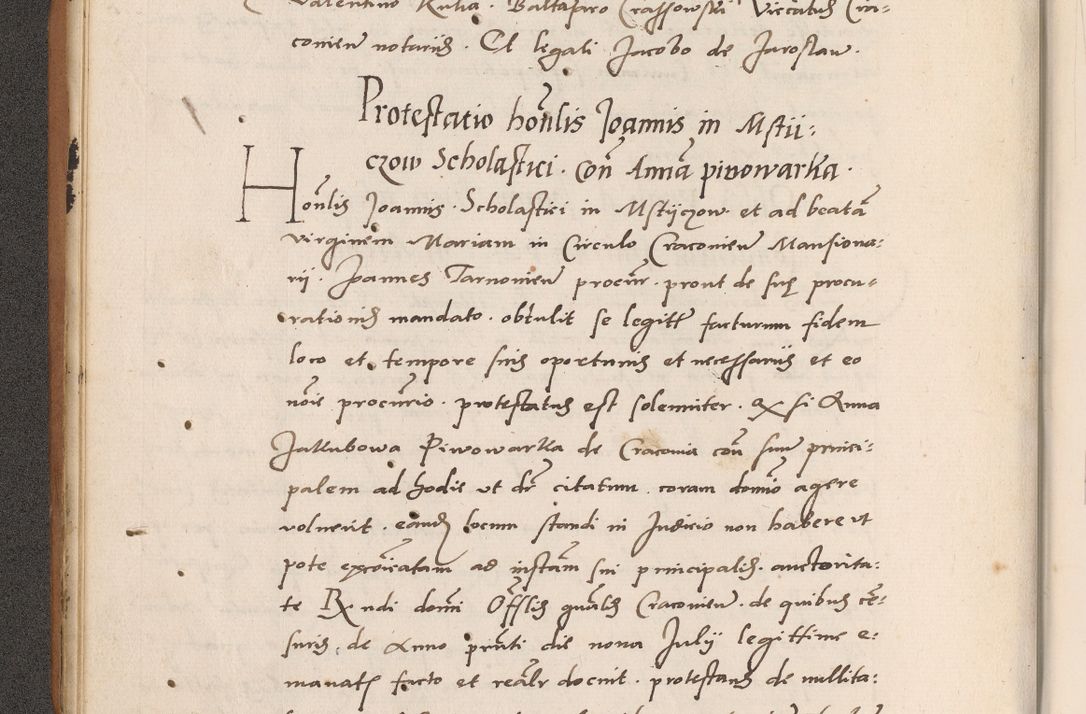 Valentino Kulia. Baltasaro Crassowski Vicariis Cra-
conien notariis. Et legali Jacobo de Jaroslaw.
Protestatio hon̄lis Joannis in Mstii-
czow Scholastici. con̄ Annā pivowarka.
Hon̄lis Joannis. Scholastici in Mstijczow et ad beatā
virginem Mariam in Circulo Craconien̄ Mansiona-
rii. Joannes Tarnovien̄ procūr. prout de suę procu-
rationis mandato. obtulit se legittē facturum fidem
loco et tempore suis oportunis et necessariis et eo
nōie procūrio. protestatus est solenniter. q̃ si Anna
Jakubowa Piwowarka de Cracovia con̄ suum princi-
palem ad hodie ut dr̄ citatum coram domīo agere
voluerit. eandē locum standi in Judicio non habere ut
pote excōicatam ad instām sui principalis. auctorita-
te Rndi domī Offlis gnālis Craconien̄. de quibus cē-
suris. de Anno pn̄ti die nona Julij legittime e-
manatę facto et reālr docuit. protestans de nullita-